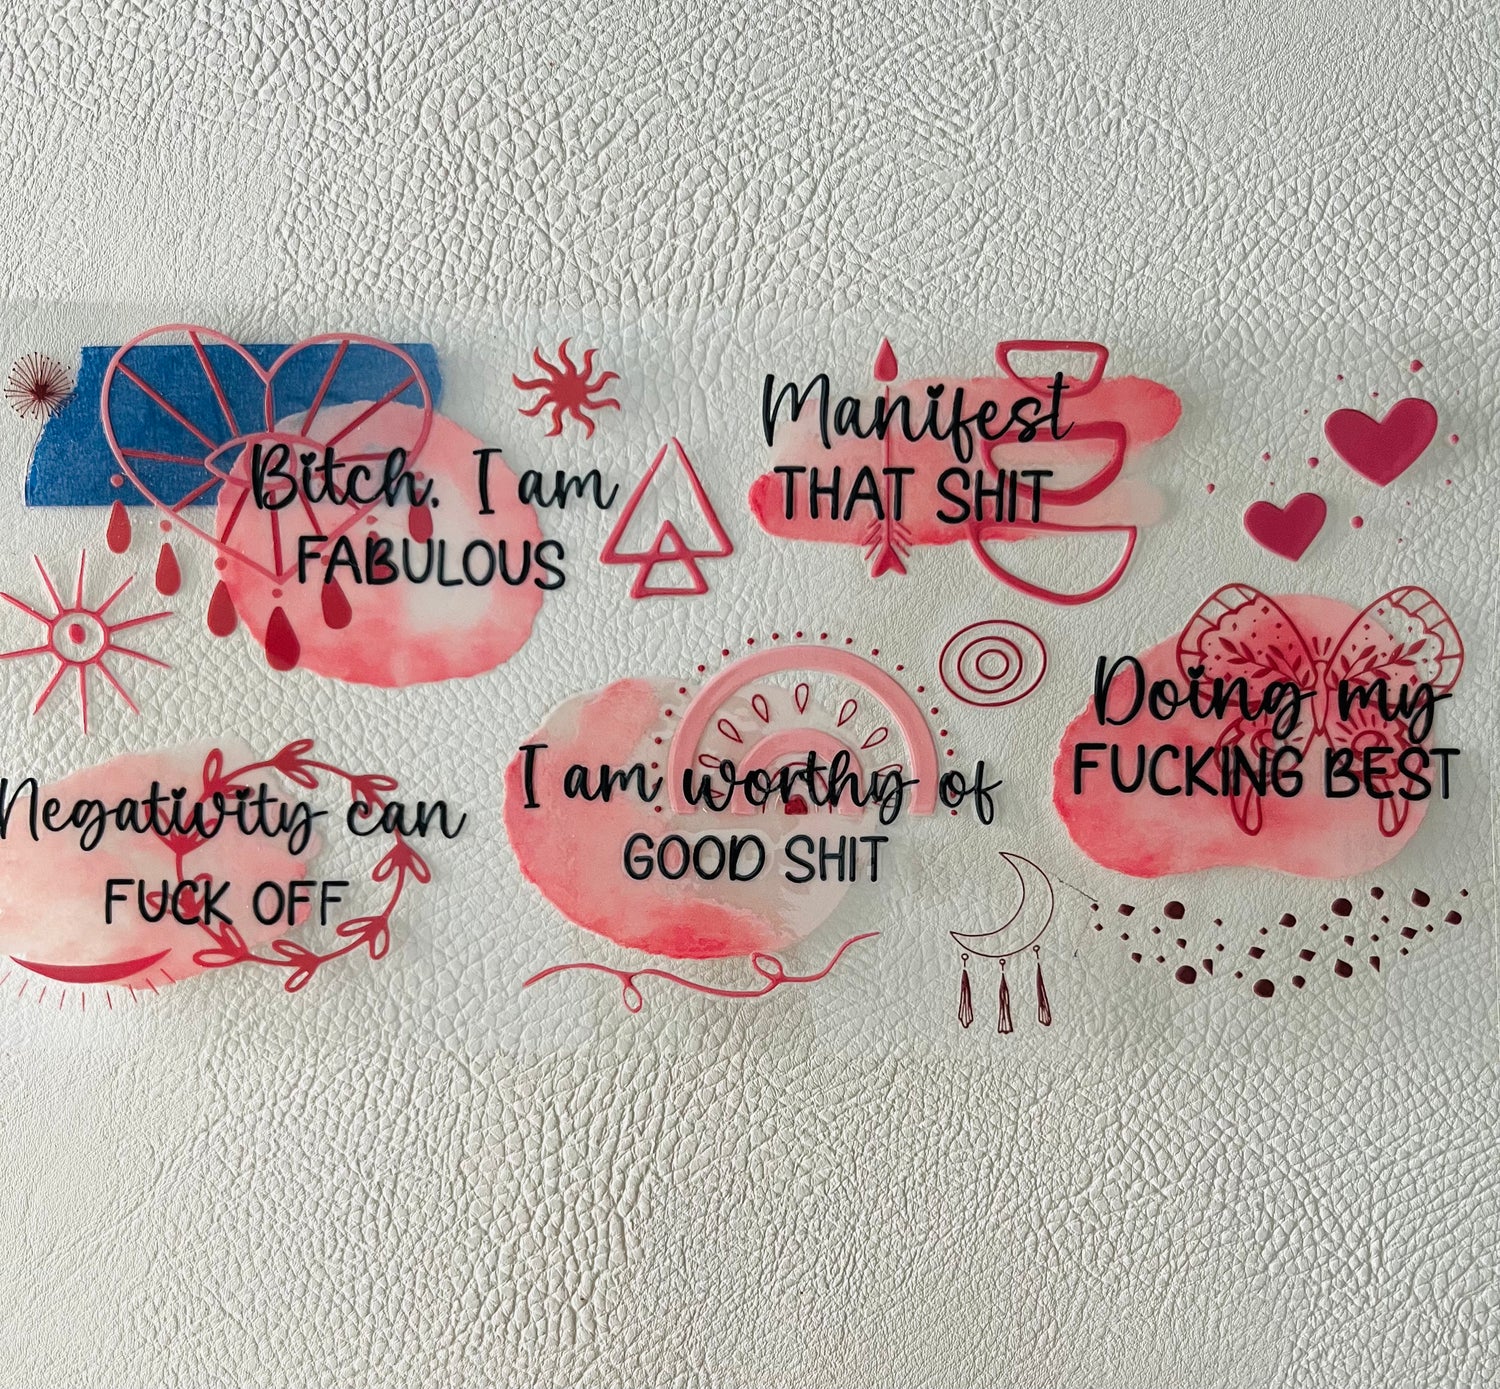 Bitch, I am
FABULOUS
Manifest
THAT SHIT
Doing my
FUCKING BEST
Negativity can
FUCK OFF
I am worthy of
GOOD SHIT